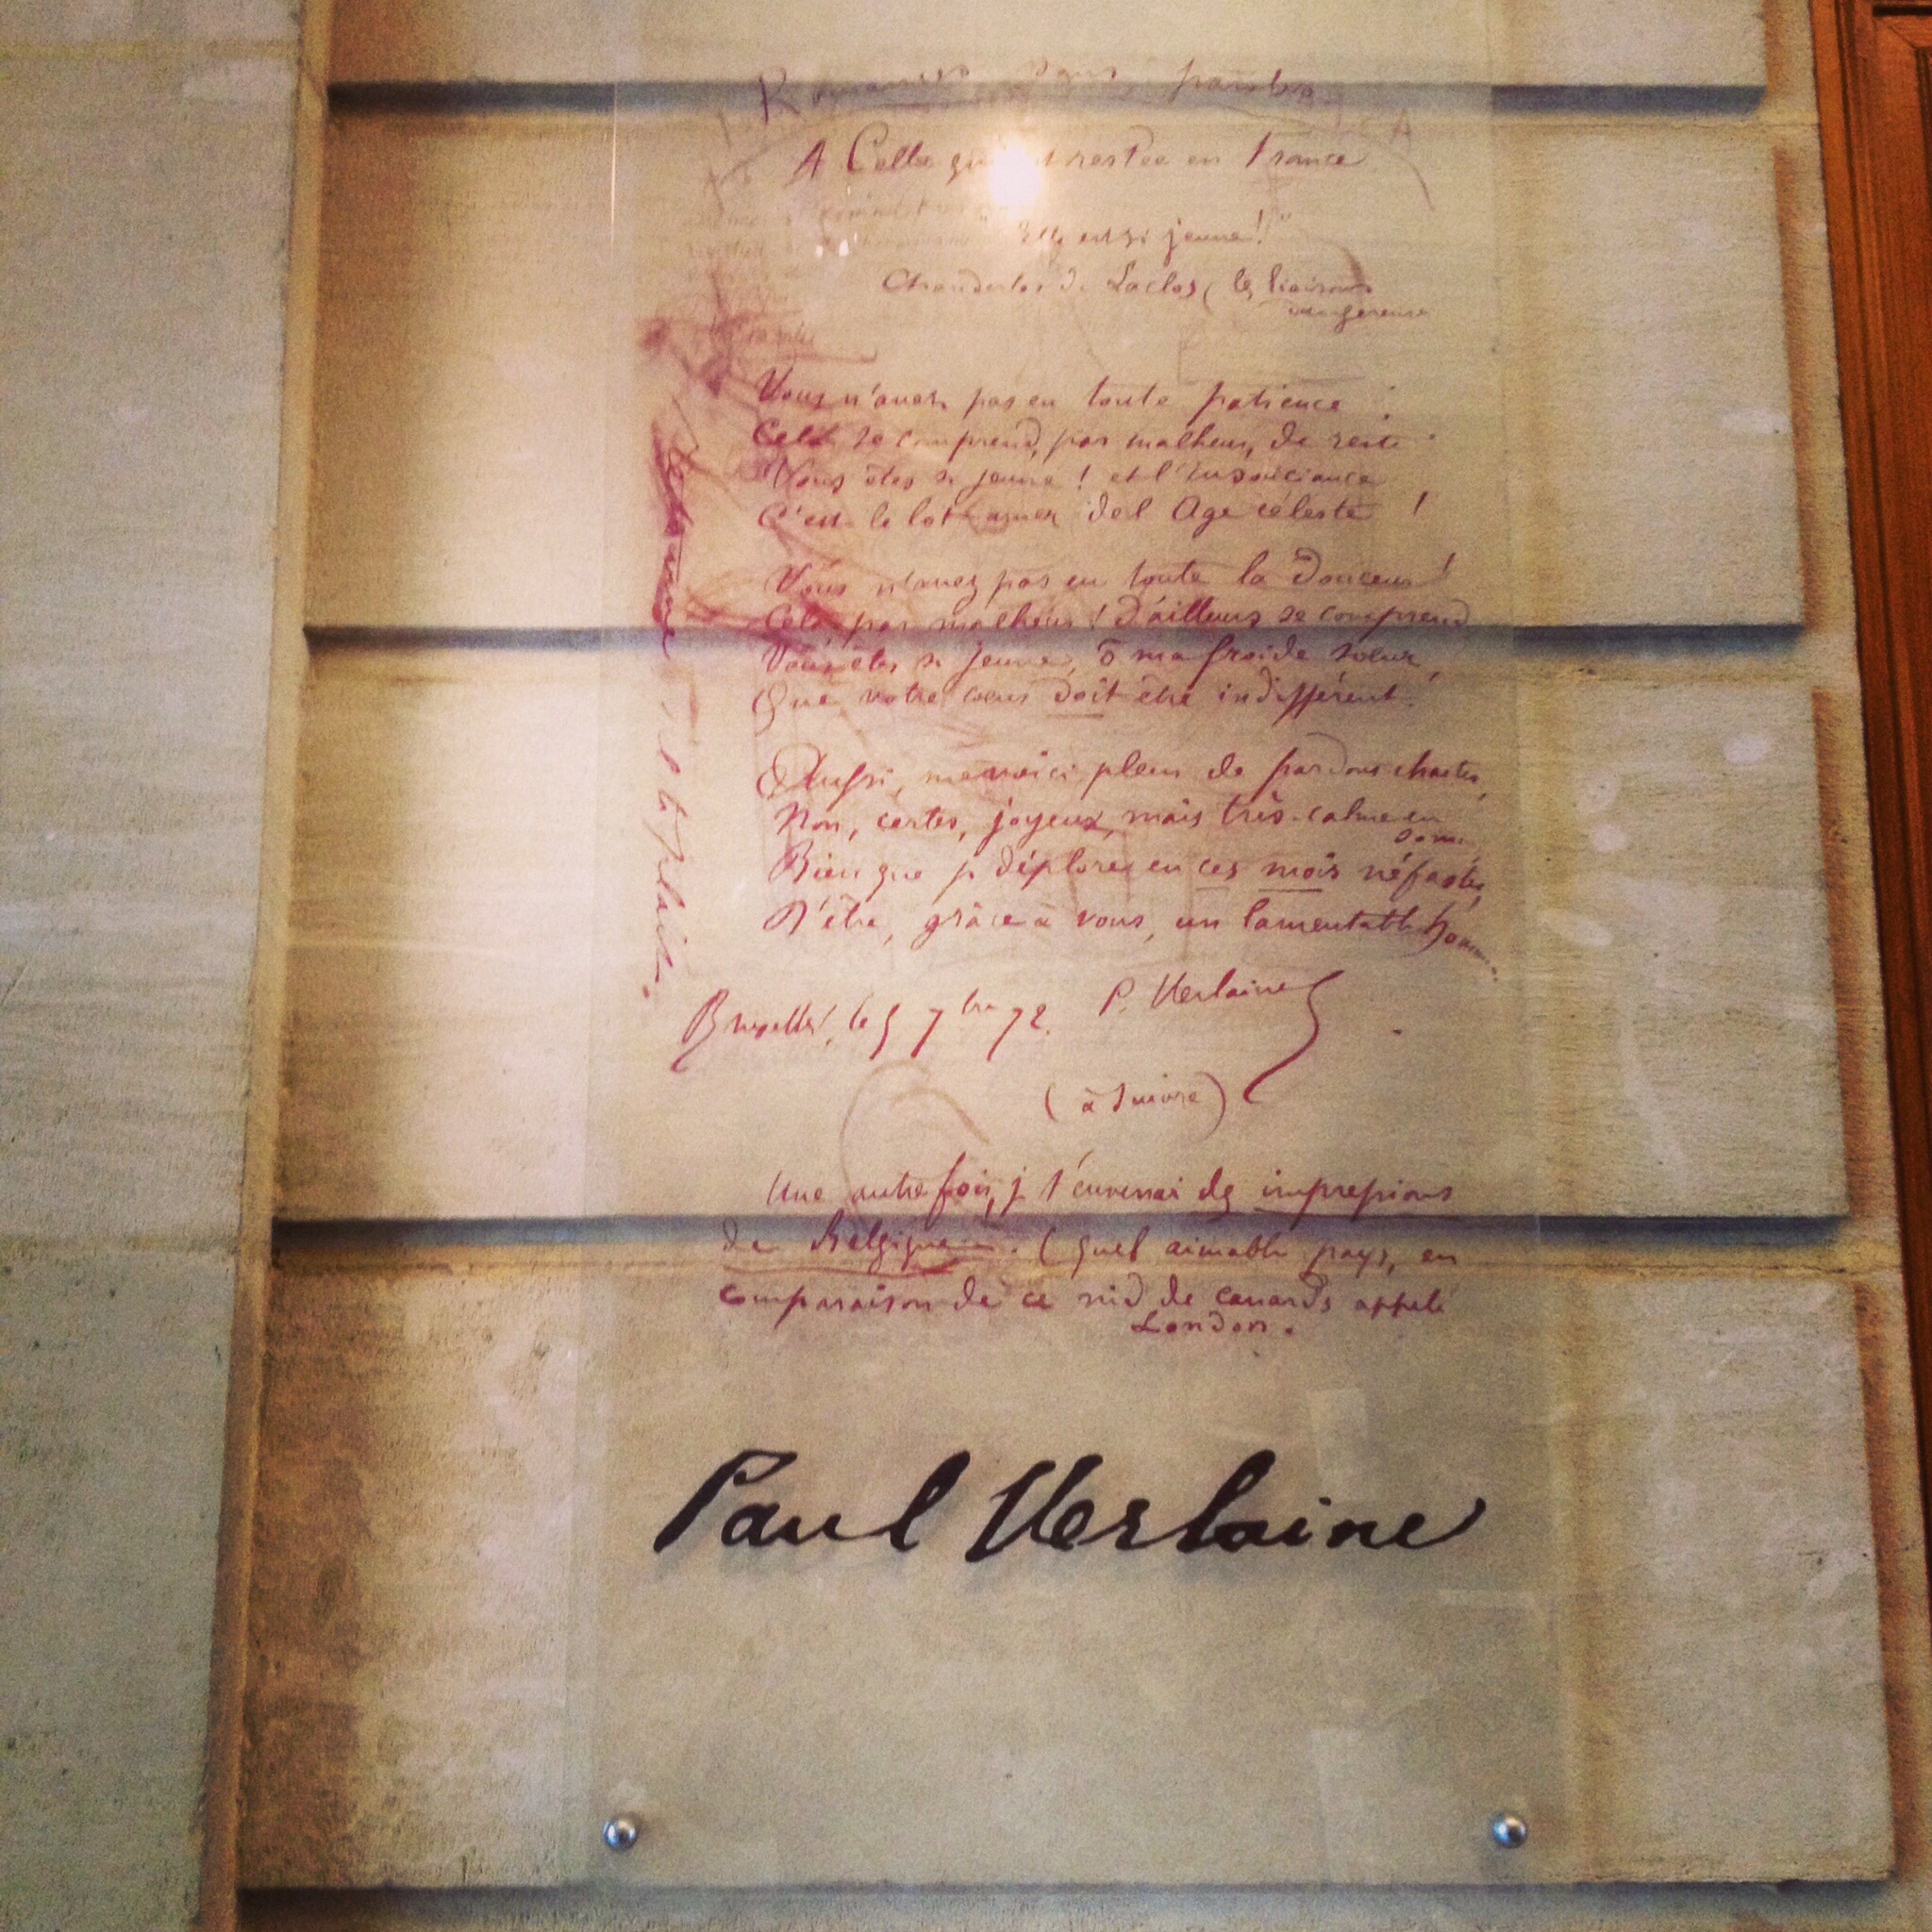 Romances sans paroles
A Celle qui est restée en France
"Elle est si jeune!"
Chauderlos de Laclos (les liaisons
dangereuses
Vous n'avez pas eu toute patience :
Cela se comprend, par malheur, de reste.
Vous êtes si jeune ! et l'insouciance
C'est le lot amer de l'Age céleste !
Vous n'avez pas eu toute la douceur !
Cela, par malheur ! d'ailleurs se comprend
Vous êtes si jeune, ô ma froide soeur,
Que votre coeur doit être indifférent.
Aussi, me voici plein de pardons chastes,
Non, certes, joyeux, mais très-calme en
somme
Bien que je déplore, en ces mois néfastes,
D'être, grâce à vous, un lamentable homme.
Bruxelles, le 5 7bre 72. P. Verlaine
(à suivre)
Une autre fois, je t'enverrai des impressions
de Belgique. (quel aimable pays, en
comparaison de ce nid de canards appelé
London.
s'il te plaît.
Paul Verlaine